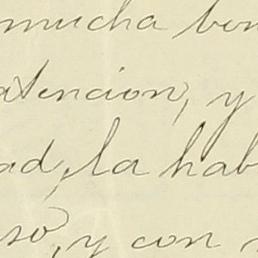 mucha bon
atencion, y
ad, la hab
so, y con